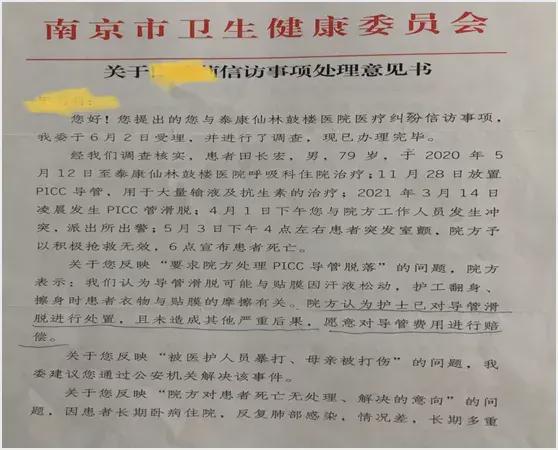 南京市卫生健康委员会
关于 信访事项处理意见书
您好！您提出的您与泰康仙林鼓楼医院医疗纠纷信访事项，
我委于6月2日受理，并进行了调查，现已办理完毕。
经我们调查核实，患者田长宏，男，79岁，于2020年5
月12日至泰康仙林鼓楼医院呼吸科住院治疗；11月28日放置
PICC导管，用于大量输液及抗生素的治疗；2021年3月14日
凌晨发生PICC管滑脱；4月1日下午您与院方工作人员发生冲
突，派出所出警；5月3日下午4点左右患者突发室颤，院方予
以积极抢救无效，6点宣布患者死亡。
关于您反映“要求院方处理PICC导管脱落”的问题，院方
表示：我们认为导管滑脱可能与贴膜因汗液松动，护工翻身、
擦身时患者衣物与贴膜的摩擦有关。院方认为护士已对导管滑
脱进行处置，且未造成其他严重后果，愿意对导管费用进行赔
偿。
关于您反映“被医护人员暴打、母亲被打伤”的问题，我
委建议您通过公安机关解决该事件。
关于您反映“院方对患者死亡无处理、解决的意向”的问
题，因患者长期卧病住院，反复肺部感染，情况差，长期多重